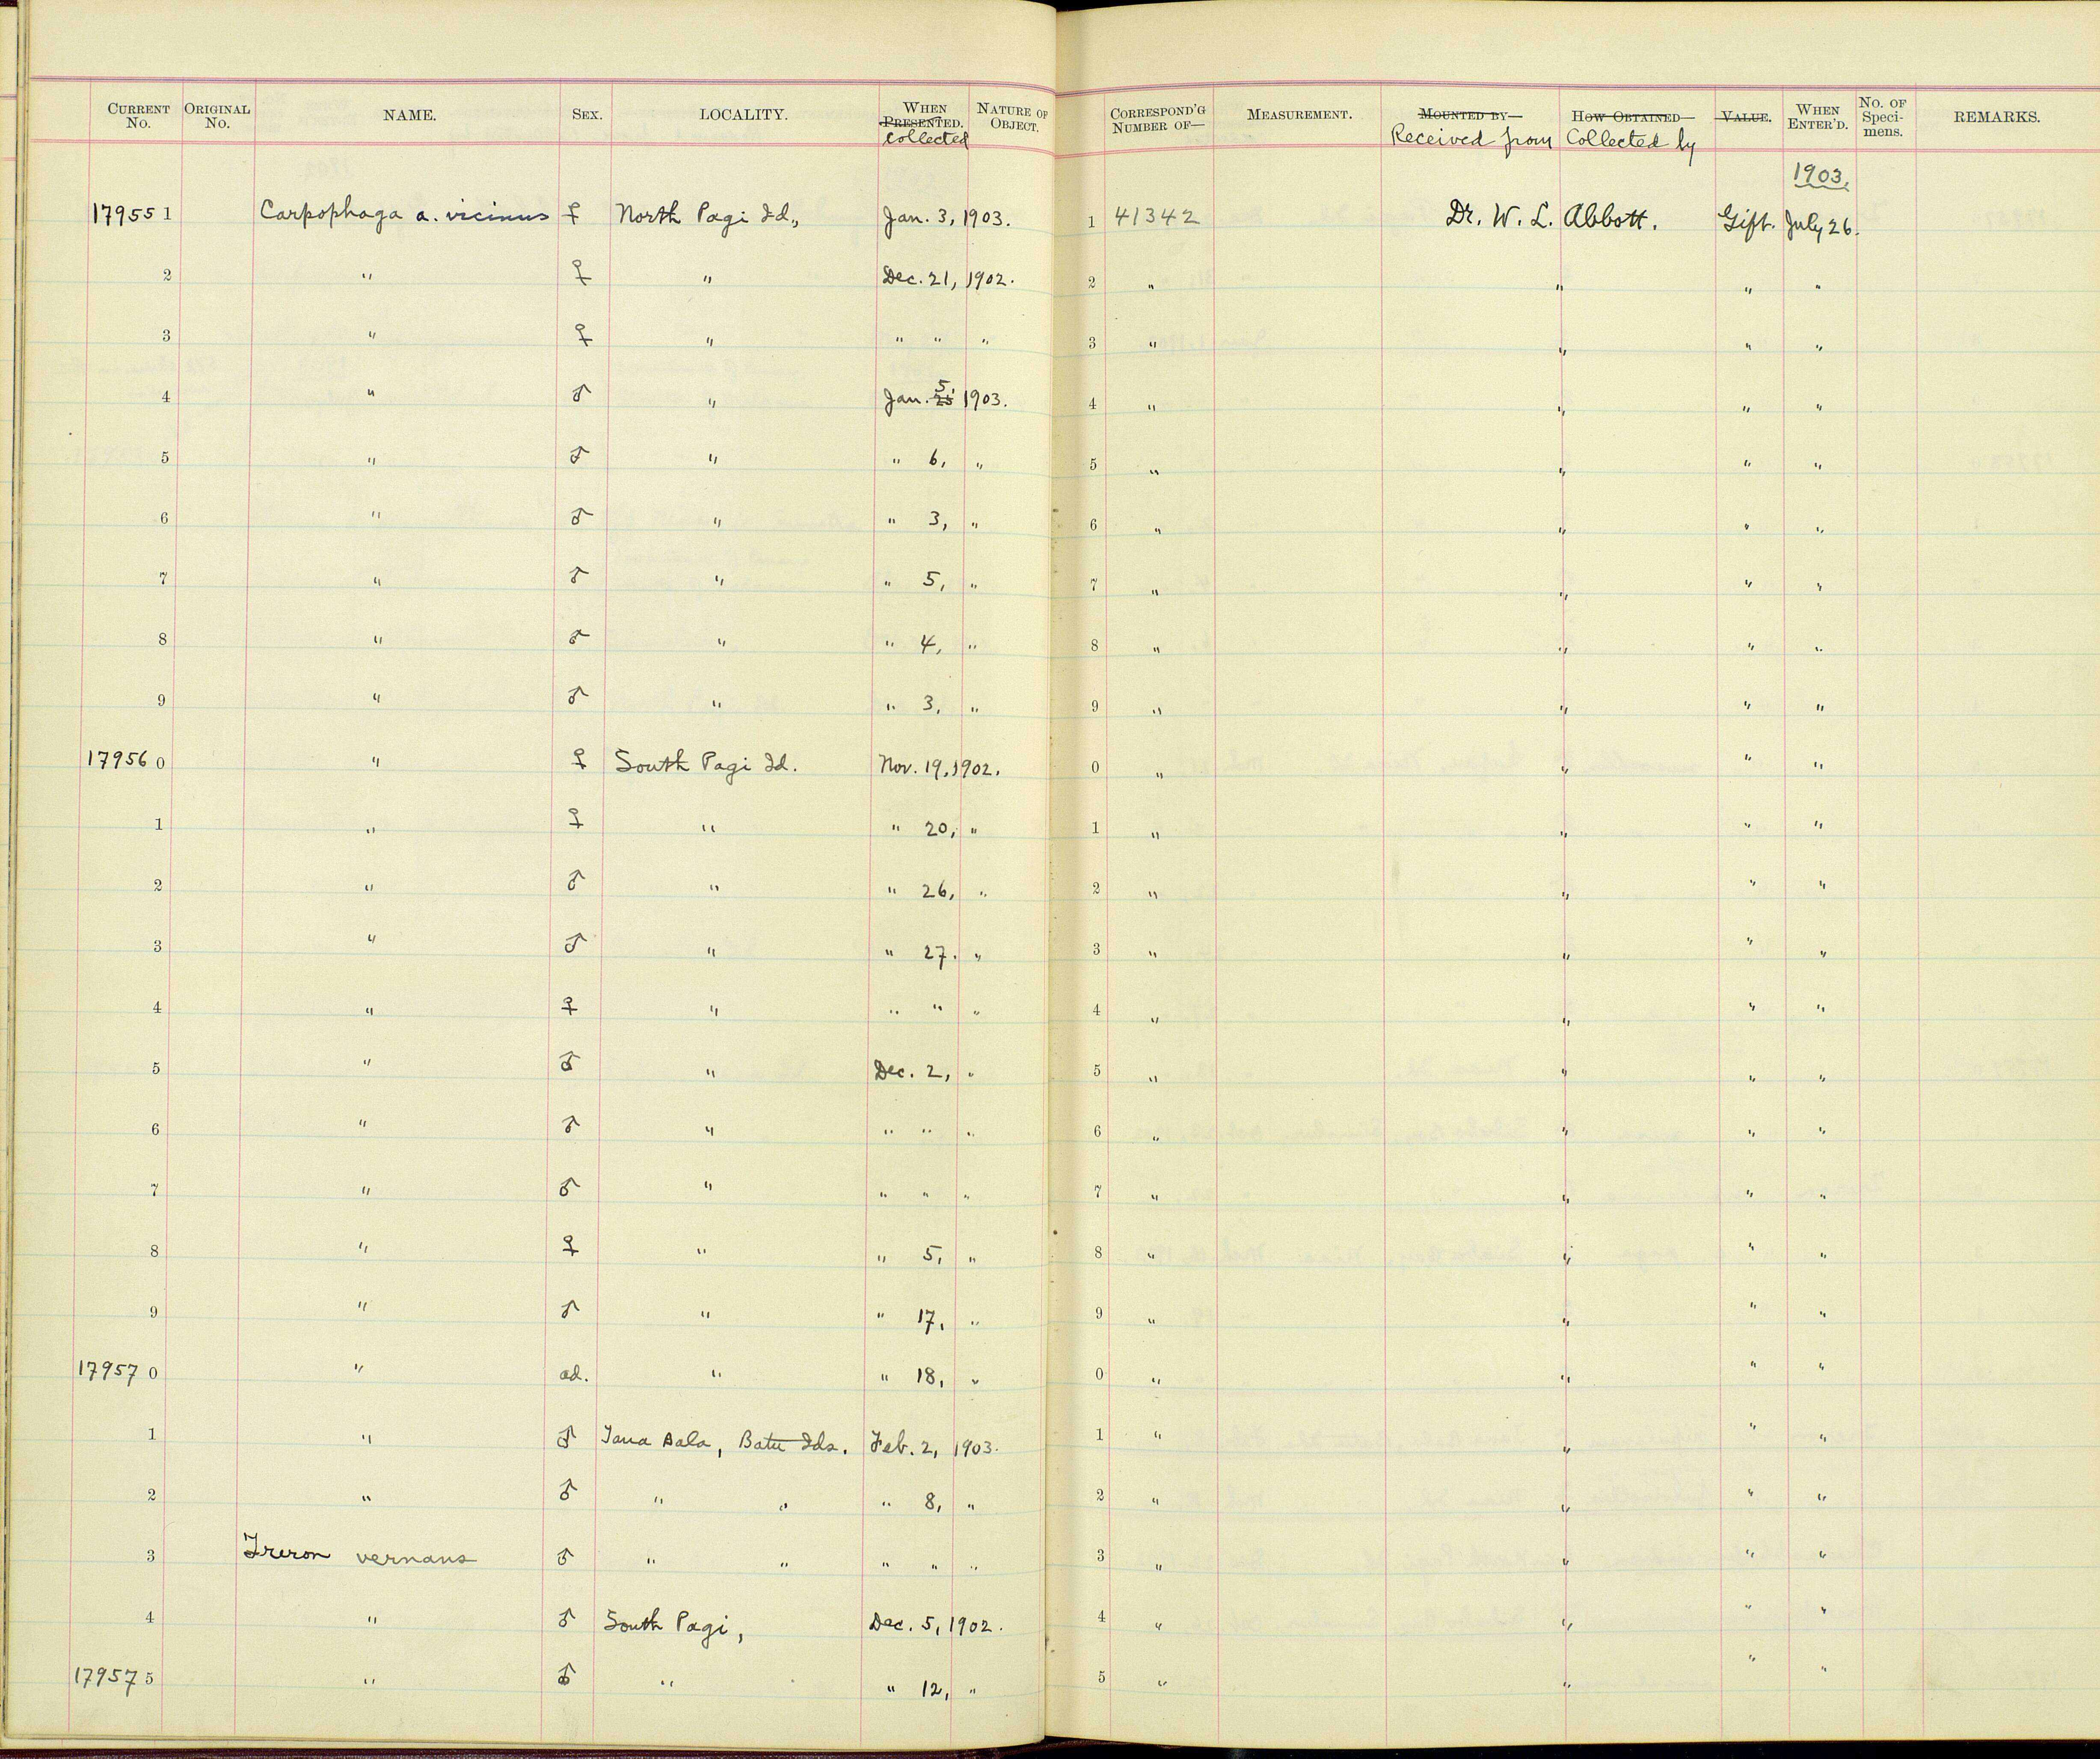 CURRENT No. ORIGINAL No. NAME. SEX. LOCALITY. WHEN PRESENTED. collected NATURE OF OBJECT. CORRESPOND'G NUMBER OF— MEASUREMENT. MOUNTED BY— Received from HOW OBTAINED— Collected by VALUE. WHEN ENTER'D. No. OF Speci-mens. REMARKS.
1903.
17955 1 Carpophaga a. vicinus ♀ North Pagi Id., Jan. 3, 1903. 1 41342 Dr. W. L. Abbott. Gift. July 26.
2 " ♀ " Dec. 21, 1902. 2 " " " "
3 " ♀ " " " " 3 " " " "
4 " ♂ " Jan. 25 5, 1903. 4 " " " "
5 " ♂ " " 6, " 5 " " " "
6 " ♂ " " 3, " 6 " " " "
7 " ♂ " " 5, " 7 " " " "
8 " ♂ " " 4, " 8 " " " "
9 " ♂ " " 3, " 9 " " " "
17956 0 " ♀ South Pagi Id. Nov. 19, 1902. 0 " " " "
1 " ♀ " " 20, " 1 " " " "
2 " ♂ " " 26, " 2 " " " "
3 " ♂ " " 27. " 3 " " " "
4 " ♀ " " " " 4 " " " "
5 " ♂ " Dec. 2, " 5 " " " "
6 " ♂ " " " " 6 " " " "
7 " ♂ " " " " 7 " " " "
8 " ♀ " " 5, " 8 " " " "
9 " ♂ " " 17, " 9 " " " "
17957 0 " ad. " " 18, " 0 " " " "
1 " ♂ Tana Bala, Batu Ids. Feb. 2, 1903. 1 " " " "
2 " ♂ " " " 8, " 2 " " " "
3 Treron vernans ♂ " " " " " 3 " " " "
4 " ♂ South Pagi, Dec. 5, 1902. 4 " " " "
17957 5 " ♂ " " 12, " 5 " " " "